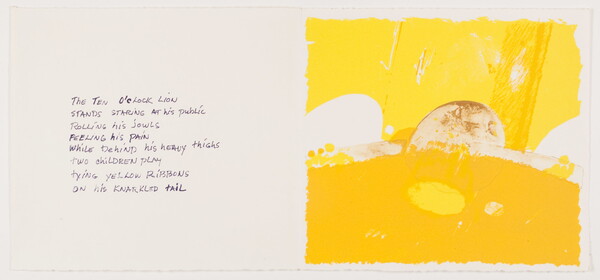 THE TEN O'CLOCK LION
STANDS STARING AT his public
ROLLING his JOWLS
FEELING his PAIN
While behind his heavy thighs
two children play
tying yellow Ribbons
ON his KNARKLED tail